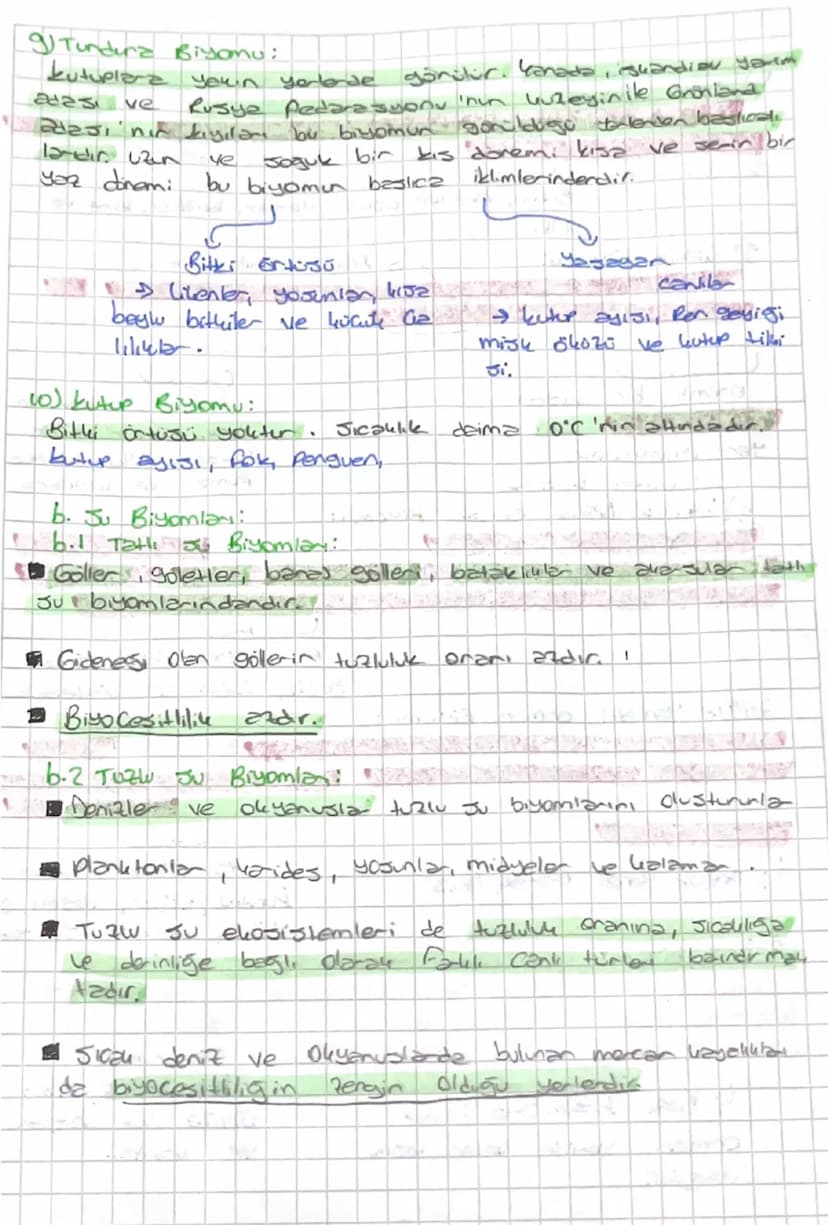 9) Tundura Biyomu:
kutuplara yakın yerlerde görülür. Kanada, iskandinav yarım
adası ve Rusya Federasyonu'nun kuzeyi ile Grönland
adası'nın kıyıları bu biyomun görüldüğü yerlerden başlıca
lardır. Uzun ve soğuk bir kış dönemi kısa ve serin bir
yaz dönemi bu biyomun başlıca iklimlerindendir.
Bitki örtüsü
→ Likenler, yosunlar, kısa
boylu bitkiler ve küçük ça
lılıklar.
Yaşayan
canlılar
→ kutup ayısı, Ren geyiği
misk öküzü ve kutup tilki
si.
10) Kutup Biyomu:
Bitki örtüsü yoktur. Sıcaklık daima 0°C'nin altındadır.
kutup ayısı, fok, Penguen,
b. Su Biyomları:
b.1 Tatlı su Biyomları:
Göller, göletler, baraj gölleri, bataklıklar ve akarsular tatlı
su biyomlarındandır.
Gideneği olan göllerin tuzluluk oranı azdır. !
Biyoçeşitlilik azdır.
b.2 Tuzlu Su Biyomları:
Denizler ve okyanuslar tuzlu su biyomlarını oluştururla
Planktonlar, karides, yosunlar, midyeler ve kalamar.
Tuzlu su ekosistemleri de tuzluluk oranına, sıcaklığa
ve derinliğe bağlı olarak farklı canlı türleri barındırmak
tadır.
Sıcak deniz ve Okyanuslarda bulunan mercan kayalıkları
da biyoçeşitliliğin zengin olduğu yerlerdir.